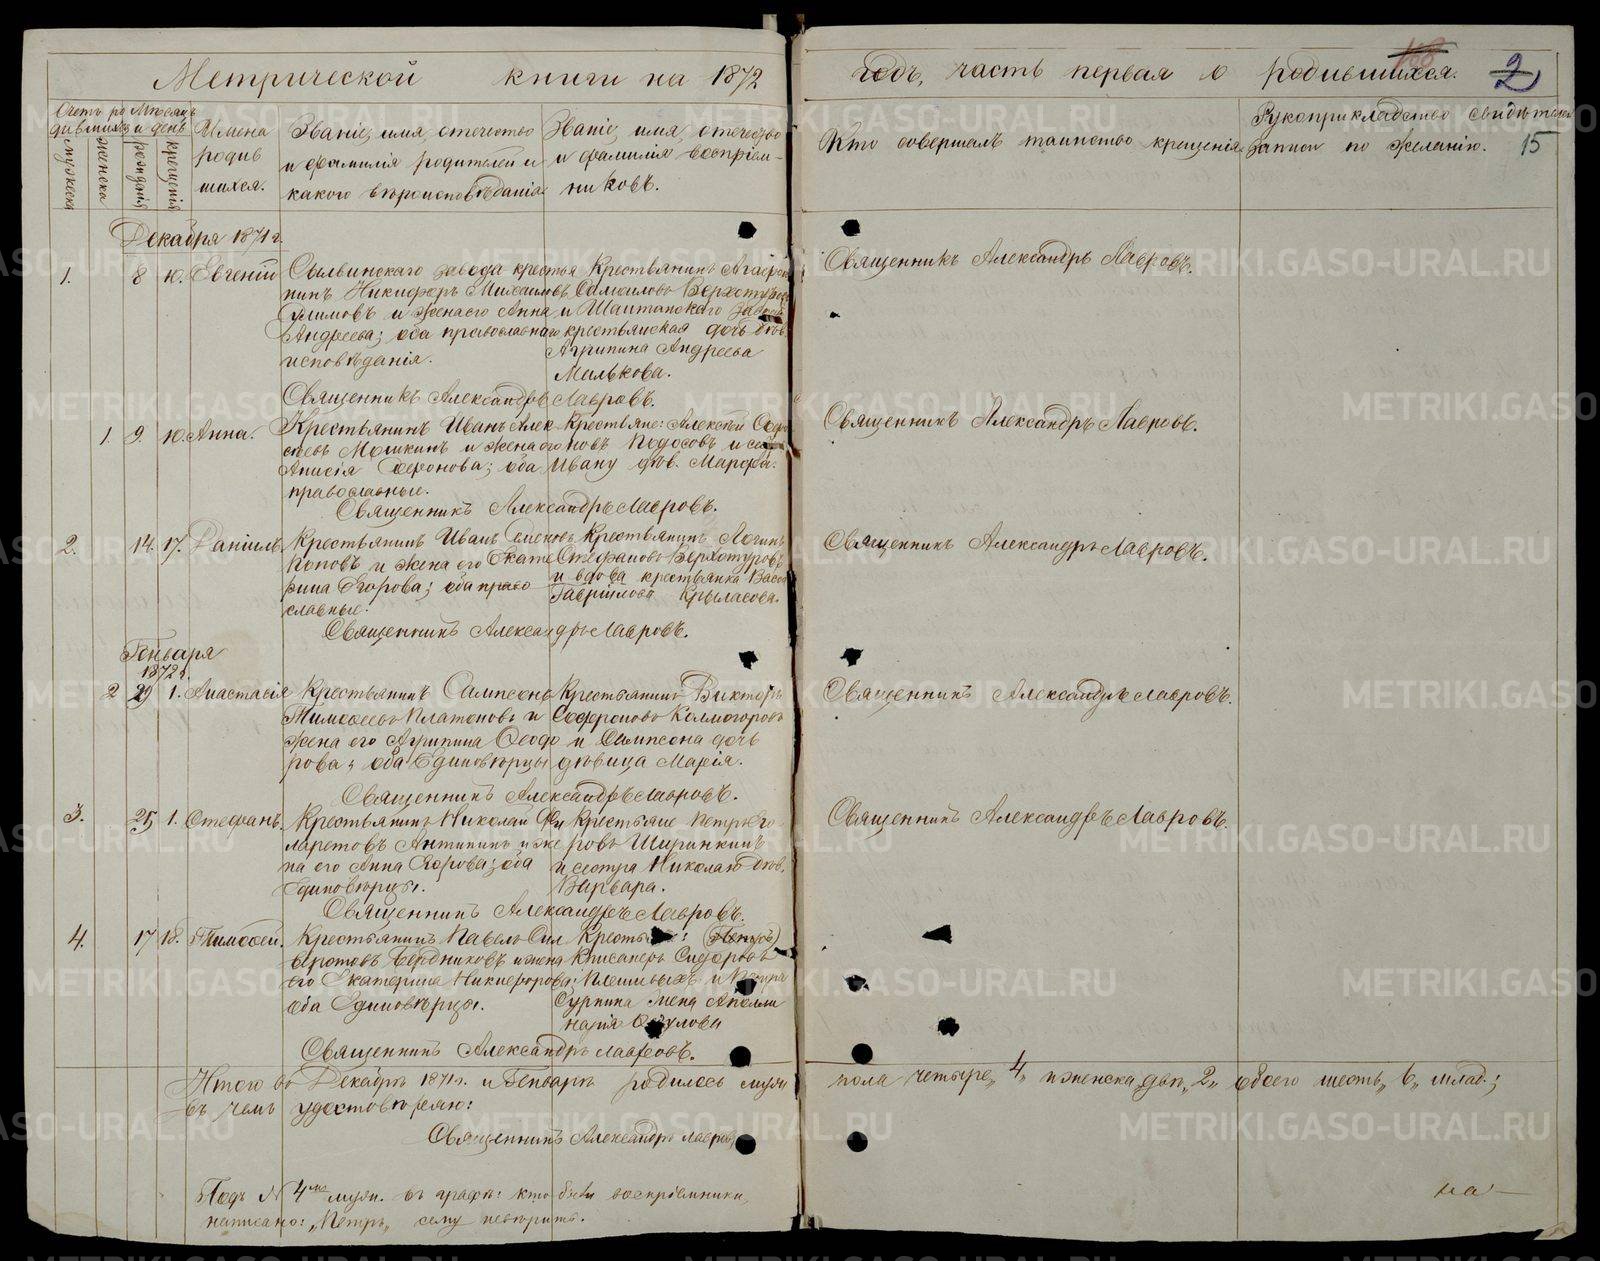 Метрической книги на 1872 годъ, часть первая о родившихся.
168
2
15
Счетъ родившихся
Мѣсяцъ и день
мужеска
женска
рожденія
крещенія
Имена родившихся.
Званіе, имя отечество
и фамилія родителей и
какого вѣроисповѣданія
Званіе, имя, отечество
и фамилія воспріем-
никовъ.
Кто совершалъ таинство крещенія
Рукоприкладство свидѣтелей
записи по желанію.
Декабря 1871 г.
1. 8 10. Евгеній
Сылвинскаго завода крестья
нинъ Никифоръ Михаиловъ
и жена его Анна
Андреева; оба православнаго
исповѣданія.
Крестьянинъ
Самоиловъ
и Шайтанскаго
крестьянская дочь дѣв.
Агрипина Андреева
Малькова.
Священникъ Александръ Лавровъ.
Священникъ Александръ Лавровъ.
1. 9. 10. Анна.
Крестьянинъ Иванъ Алек
сѣевъ Мошкинъ и жена его
Анисія оба
православные.
Крестьяне: Алексѣй
Подосовъ и
Ивану дѣв. Марфа.
Священникъ Александръ Лавровъ.
Священникъ Александръ Лавровъ.
2. 14. 17. Даніилъ.
Крестьянинъ Иванъ Семеновъ
Поповъ и жена его Екате
рина Егорова; оба право
славные.
Крестьянинъ Логинъ
Стефановъ Верхотуровъ
и вдова крестьянка
Гавриилова Крыласова.
Священникъ Александръ Лавровъ.
Священникъ Александръ Лавровъ.
Генваря
1872 г.
2 29 1. Анастасія
Крестьянинъ Сампсонъ
Тимофеевъ Платоновъ и
жена его Агрипина Ѳеодо
рова; оба Единовѣрцы
Крестьянинъ Викторъ
Софроновъ Колмогоровъ
и Сампсона дочь
дѣвица Марія.
Священникъ Александръ Лавровъ.
Священникъ Александръ Лавровъ.
3. 25 1. Стефанъ.
Крестьянинъ Николай Фи
ларетовъ Антипинъ и же
на его Анна оба
Единовѣрцы.
Крестьяне Петръ Его
ровъ Ширинкинъ
и сестра Николаю дѣв.
Варвара.
Священникъ Александръ Лавровъ.
Священникъ Александръ Лавровъ.
4. 17 18. Тимофей.
Крестьянинъ Павелъ Сил
Бердниковъ и жена
его Екатерина Никифорова;
оба Единовѣрцы.
(Петръ)
Сидоровъ
Плешивыхъ и Петра
жена Аполли
нарія
Священникъ Александръ Лавровъ.
Итого въ Декабрѣ 1871 г. и Генварѣ родилось муж. пола четыре „4„ и женска два „2„ обоего шесть „6„ млад.;
въ чемъ удостовѣряю:
Священникъ Александръ Лавровъ
Подъ № 4мъ муж. въ графѣ: кто были воспріемники,
написано: „Петръ„ сему невѣрить.
на –
METRIKI.GASO-URAL.RU